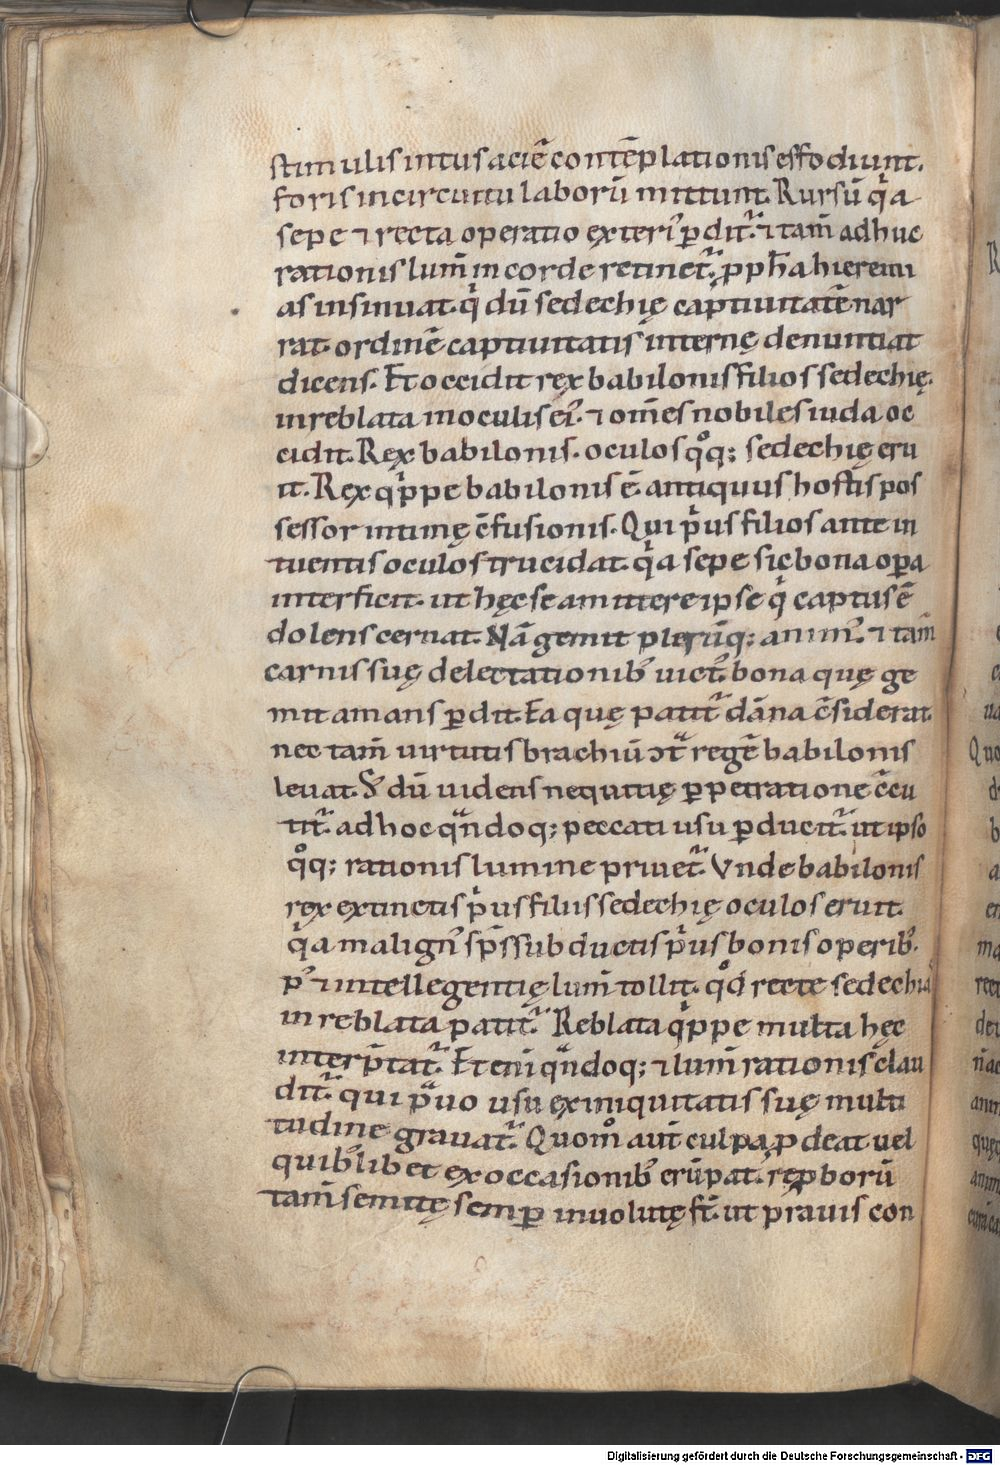 stimulis intus aciē contēplationis effodiunt.
foris in circuitu laborū mittunt. Rursū qͥa
sepe ⁊ recta operatio exteriꝰ ꝑditᷣ. ⁊ tam̄ adhuc
rationis lum̄ in corde retinetᷣ. ꝓph̄a hieremi
as insinuat. qͥ dū sedechię captiuitatē nar
rat. ordinē captiuitatis internę denuntiat
dicens. Et occidit rex babilonis filios sedechię.
in reblata in oculis eiꝰ. ⁊ om̄es nobiles iuda oc
cidit. Rex babilonis. oculos qͦq; sedechię eru
it. Rex qͥppe babilonis ē antiquus hostis pos
sessor intimę c̄fusionis. Qui pͥus filios ante in
tuentis oculos trucidat. qͥa sepe sic bona oꝑa
interficit. ut hęc se amittere ipse qͥ captus ē
dolens cernat. Nā gemit plerūq; animꝰ. ⁊ tam̄
carnis suę delectationibꝰ uictꝰ. bona quę ge
mit amans ꝑdit. Ea quę patitᷣ dāna c̄siderat.
nec tam̄ uirtutis brachiū ↄtͣ regē babilonis
leuat. S; dū uidens nequitię ꝑpetratione c̄cu
titᷣ. ad hoc qͣndoq; peccati usu ꝑducitᷣ. ut ipso
qͦq; rationis lumine priuetᷣ. Vnde babilonis
rex extinctis pͥus filiis sedechię oculos eruit.
qͥa malignꝰ sp̄s subductis pͥus bonis operibꝰ.
pꝰ ⁊ intellegentię lum̄ tollit. qͦd recte sedechiaͣ
in reblata patitᷣ. Reblata qͥppe multa hęc
interp̄tatᷣ. Et eni̅ qͣndoq; ⁊ lum̄ rationis clau
ditᷣ. qui pͣuo usu ex iniquitatis suę multi
tudine grauatᷣ. Quomͦ aut̄ culpa ꝓdeat uel
quibꝰlibet ex occasionibꝰ erūpat. rę pborū
tam̄ semitę semꝑ inuolutę st̄. ut prauis con
Digitalisierung gefördert durch die Deutsche Forschungsgemeinschaft - DFG